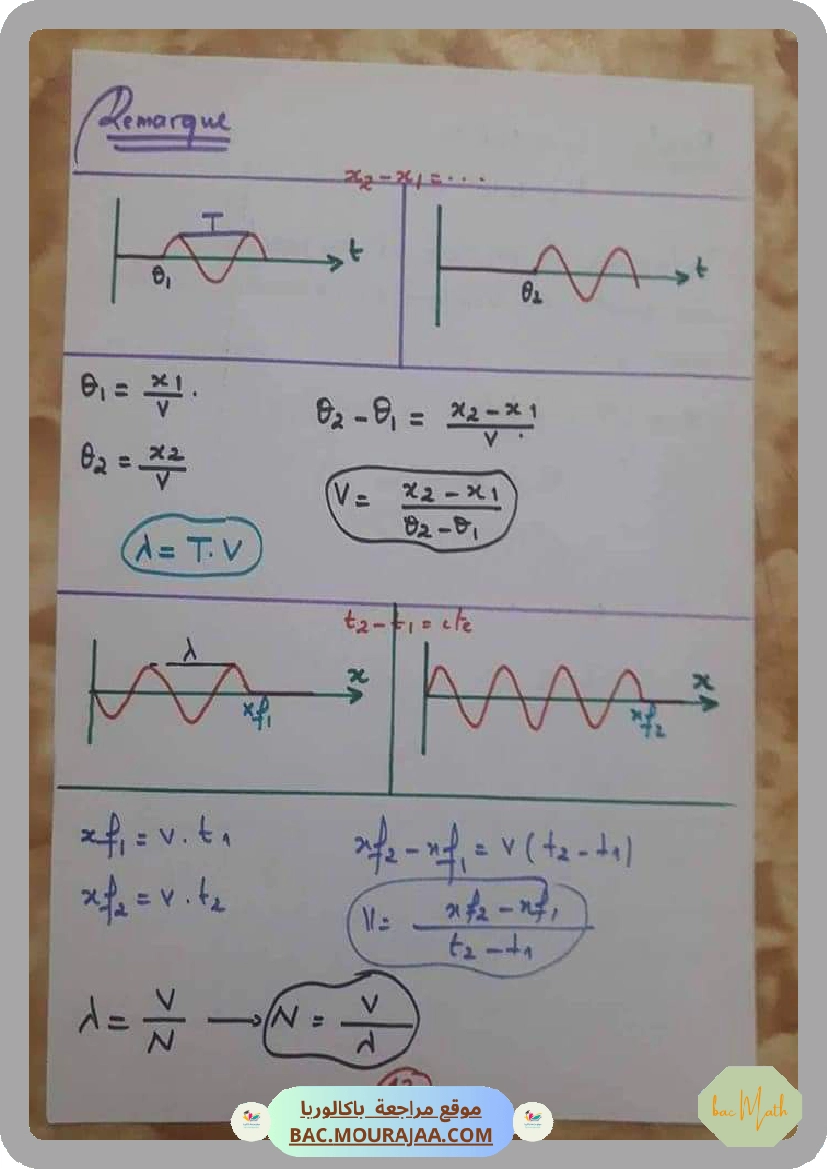 Remarque
x₂ - x₁ = ...
T
t
θ₁
t
θ₂
θ₁ = x1/V .
θ₂ - θ₁ = x₂ - x1/V .
θ₂ = x2/V
V = x₂ - x1/θ₂ - θ₁
λ = T.V
t₂ - t₁ = cte
λ
x
xf₁
x
xf₂
xf₁ = v . t₁
xf₂ - xf₁ = v (t₂ - t₁)
xf₂ = v . t₂
V = xf₂ - xf₁/t₂ - t₁
λ = V/N → N = V/λ
موقع مراجعة باكالوريا
BAC.MOURAJAA.COM
bac Math